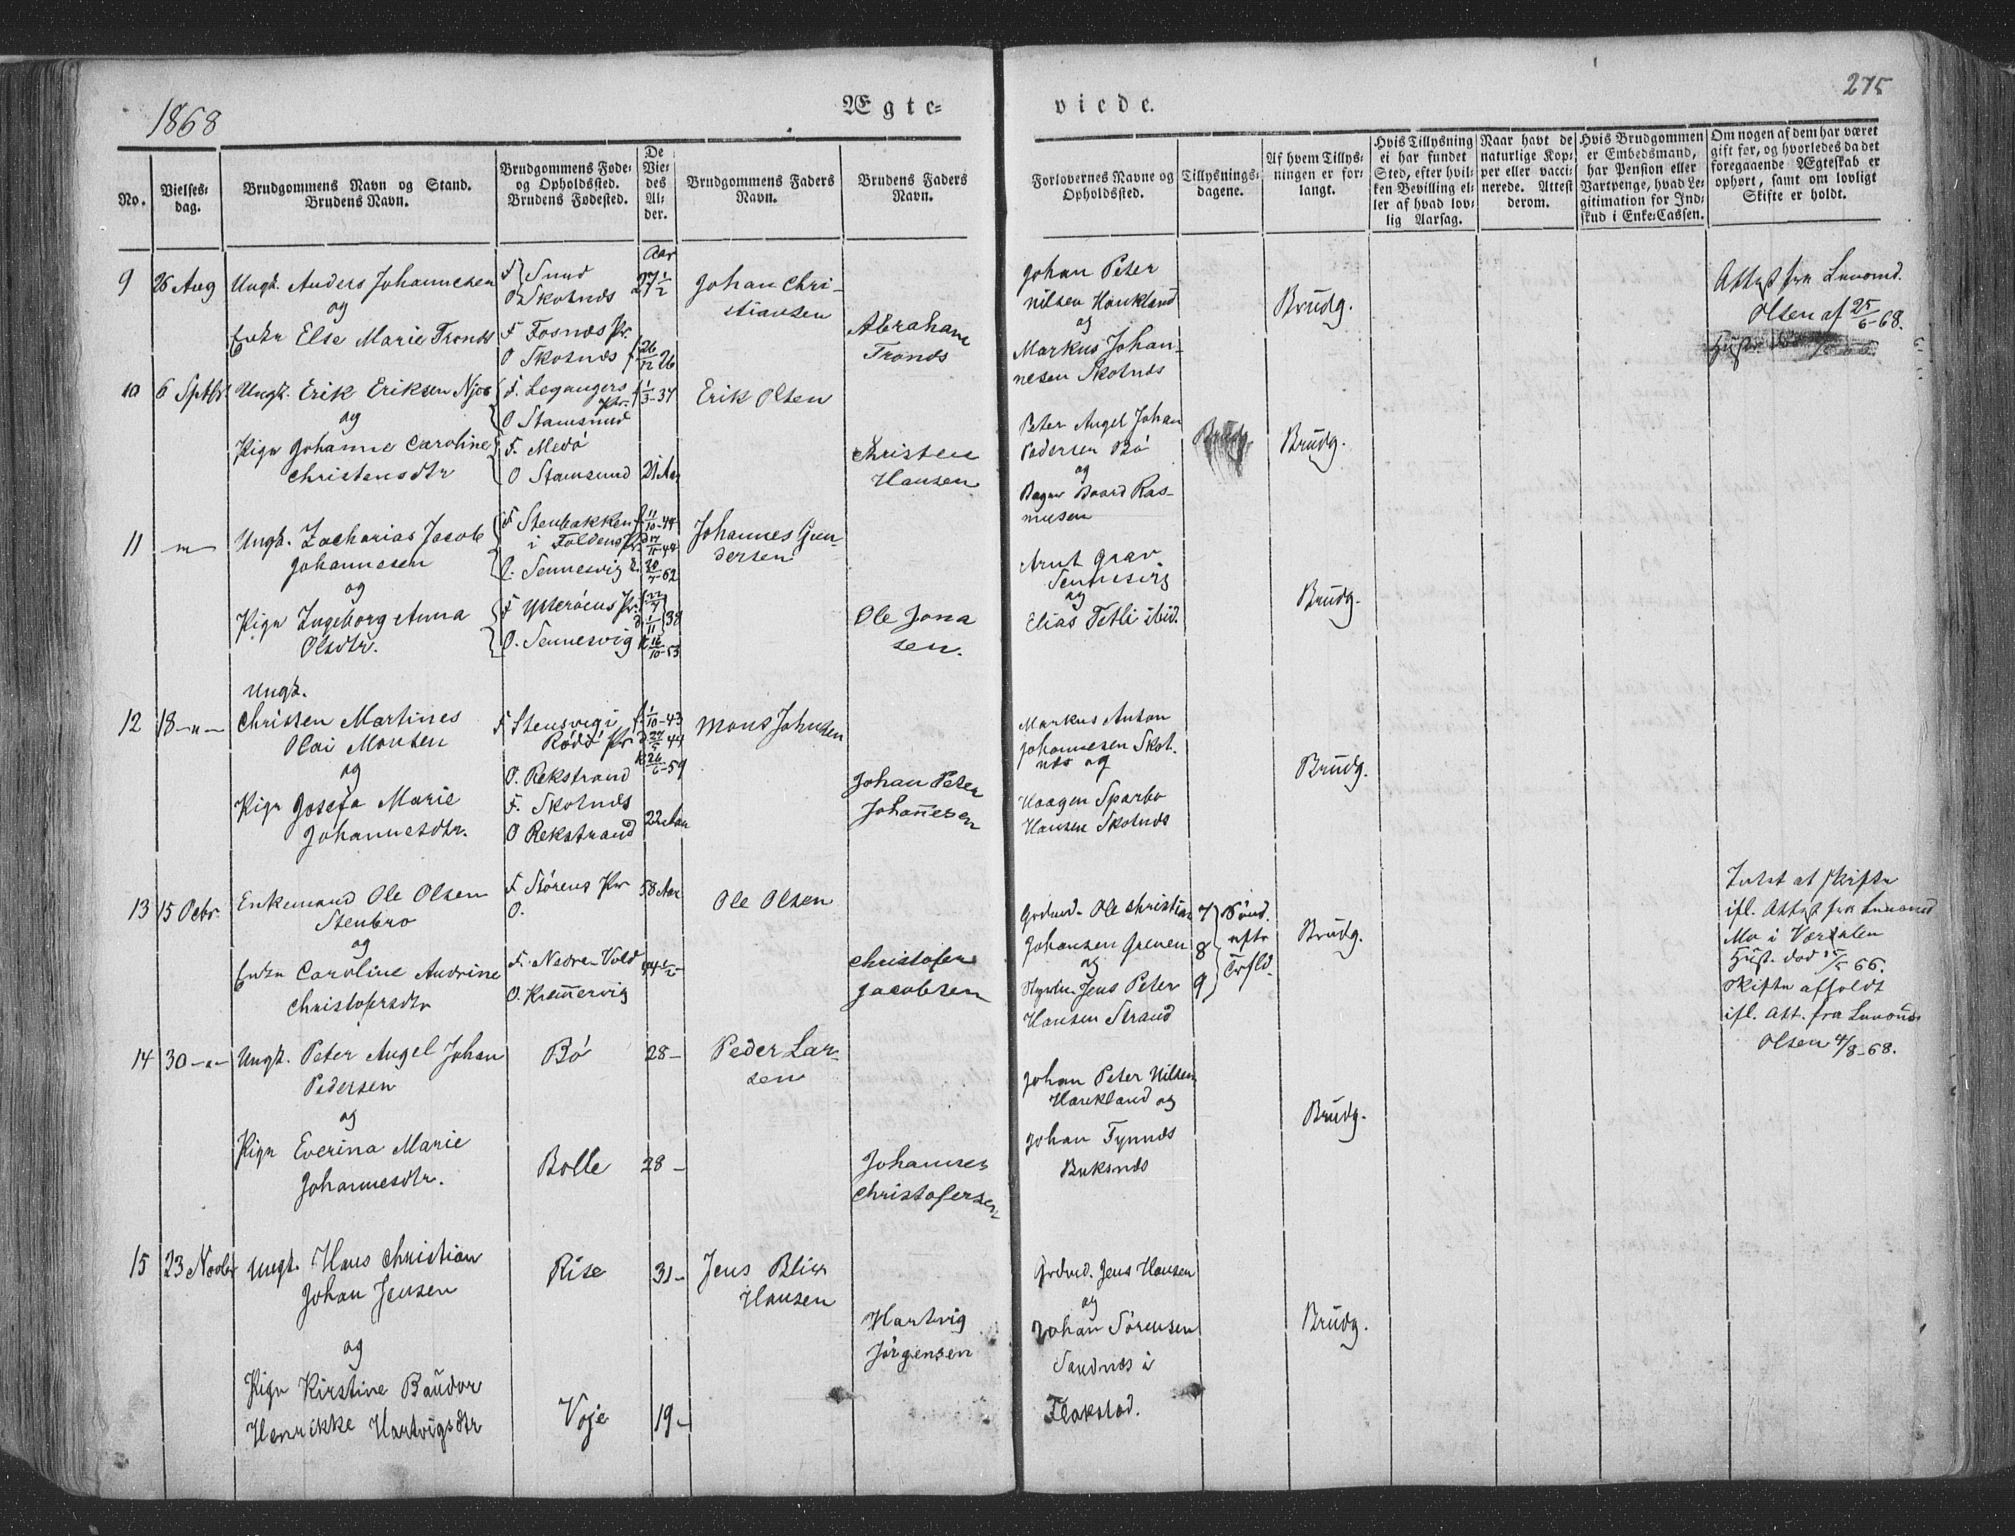 1868
Ægte-
viede.
275
No.
Vielses-
dag.
Brudgommens Navn og Stand.
Brudens Navn.
Brudgommens Føde-
og Opholdssted.
Brudens Fødested.
De
Vie-
des
Al-
der.
Brudgommens Faders
Navn.
Brudens Faders
Navn.
Forlovernes Navne og
Opholdssted.
Tillysnings-
dagene.
Af hvem Tillys-
ningen er for-
langt.
Hvis Tillysning
ei har fundet
Sted, efter hvil-
ken Bevilling el-
ler af hvad lov-
lig Aarsag.
Naar havt de
naturlige Kop-
per eller vacci-
nerede. Attest
derom.
Hvis Brudgommen
er Embedsmand,
har Pension eller
Vartpenge, hvad Le-
gitimation for Ind-
skud i Enke-Cassen.
Om nogen af dem har været
gift før, og hvorledes da det
foregaaende Ægteskab er
ophørt, samt om lovligt
Skifte er holdt.
9
26 Aug
Ungk. Anders Johannesen
og
Enke Else Marie Tronds
F Sund
O Skotnæs
F Fosnæs Pr.
O Skotnæs
Aar
27 1/2
f 26/12 26
Johan Chri-
stiansen
Abraham
Tronds
Johan Peter
Nilsen Haukland
og
Markus Johan-
nesen Skotnæs
Brudg.
Attest fra Lensmd.
Olsen af 25/6-68.
10
6 Sptbr.
Ungk. Erik Eriksen Njøs
og
Pige Johanne Caroline
Christensdtr
F. Legangers
Pr.
O Stamsund
F. Medø
O Stamsund
f 1/3-37
21 Aar
Erik Olsen
Christen
Hansen
Peter Angel Johan
Pedersen Bø
og
Bager Baard Ras-
musen
Brudg.
11
-"-
Ungk. Zacharias Jacob
Johannesen
og
Pige Ingeborg Anna
Olsdtr.
F Stenbakken
i Foldens Pr.
O. Sennesvig
F Ytterøens Pr.
O. Sennesvig
f 11/10-44
11-44
62
38
k 16/10-53
Johannes Gun-
dersen
Ole Jona
sen.
Arnt Grav
Sennesvig
og
Elias Tetli ibid.
Brudg.
12
18-"-
Ungk.
Christen Martines
Olai Monsen
og
Pige Josefa Marie
Johannesdtr.
F Stensvig i
Rødø Pr
O. Rekstrand
F. Skotnæs
O Rekstrand
f 1/10-43
44
k 26/6-59
22 Aar
Mons Johnsen
Johan Peter
Johannesen
Markus Anton
Johannesen Skot-
næs og
Haagen Sparbo
Hansen Skotnæs
Brudg.
13
15 Octbr.
Enkemand Ole Olsen
Stenbro
og
Enke Caroline Andrine
Christofersdtr
F Skørens Pr
O.
F. Nedre-Vold
O. Kremmervig
58 Aar
44 1/2-
Ole Olsen
Christofer
Jacobsen
Grdmd. Ole Christian
Johansen Grenen
og
Jens Peter
Hansen Strand
7
8
9
Sønd.
efter
Trfld.
Brudg.
Intet at skifte
ifl. Attest fra Lensmd
Mo i Værdalen
Hust. død 15/5 66.
Skifte afholdt
ifl. Att. fra Lensmd
Olsen 4/8-68.
14
30-"-
Ungk. Peter Angel Johan
Pedersen
og
Pige Everina Marie
Johannesdtr.
Bø
Bolle
28-
28-
Peder Lar-
sen
Johannes
Christofersen
Johan Peter Nilsen
Haukland og
Johan Fynnæs
Buksnæs
Brudg.
15
23 Novbr
Ungk. Hans Christian
Johan Jensen
og
Pige Kirstine Baudor
Henrikke Hartvigsdtr
Rise
Voje
31-
19-
Jens Blix
Hansen
Hartvig
Jørgensen
Grdmd. Jens Hansen
og
Johan Sørensen
Sandnæs i
Flakstad.
Brudg.